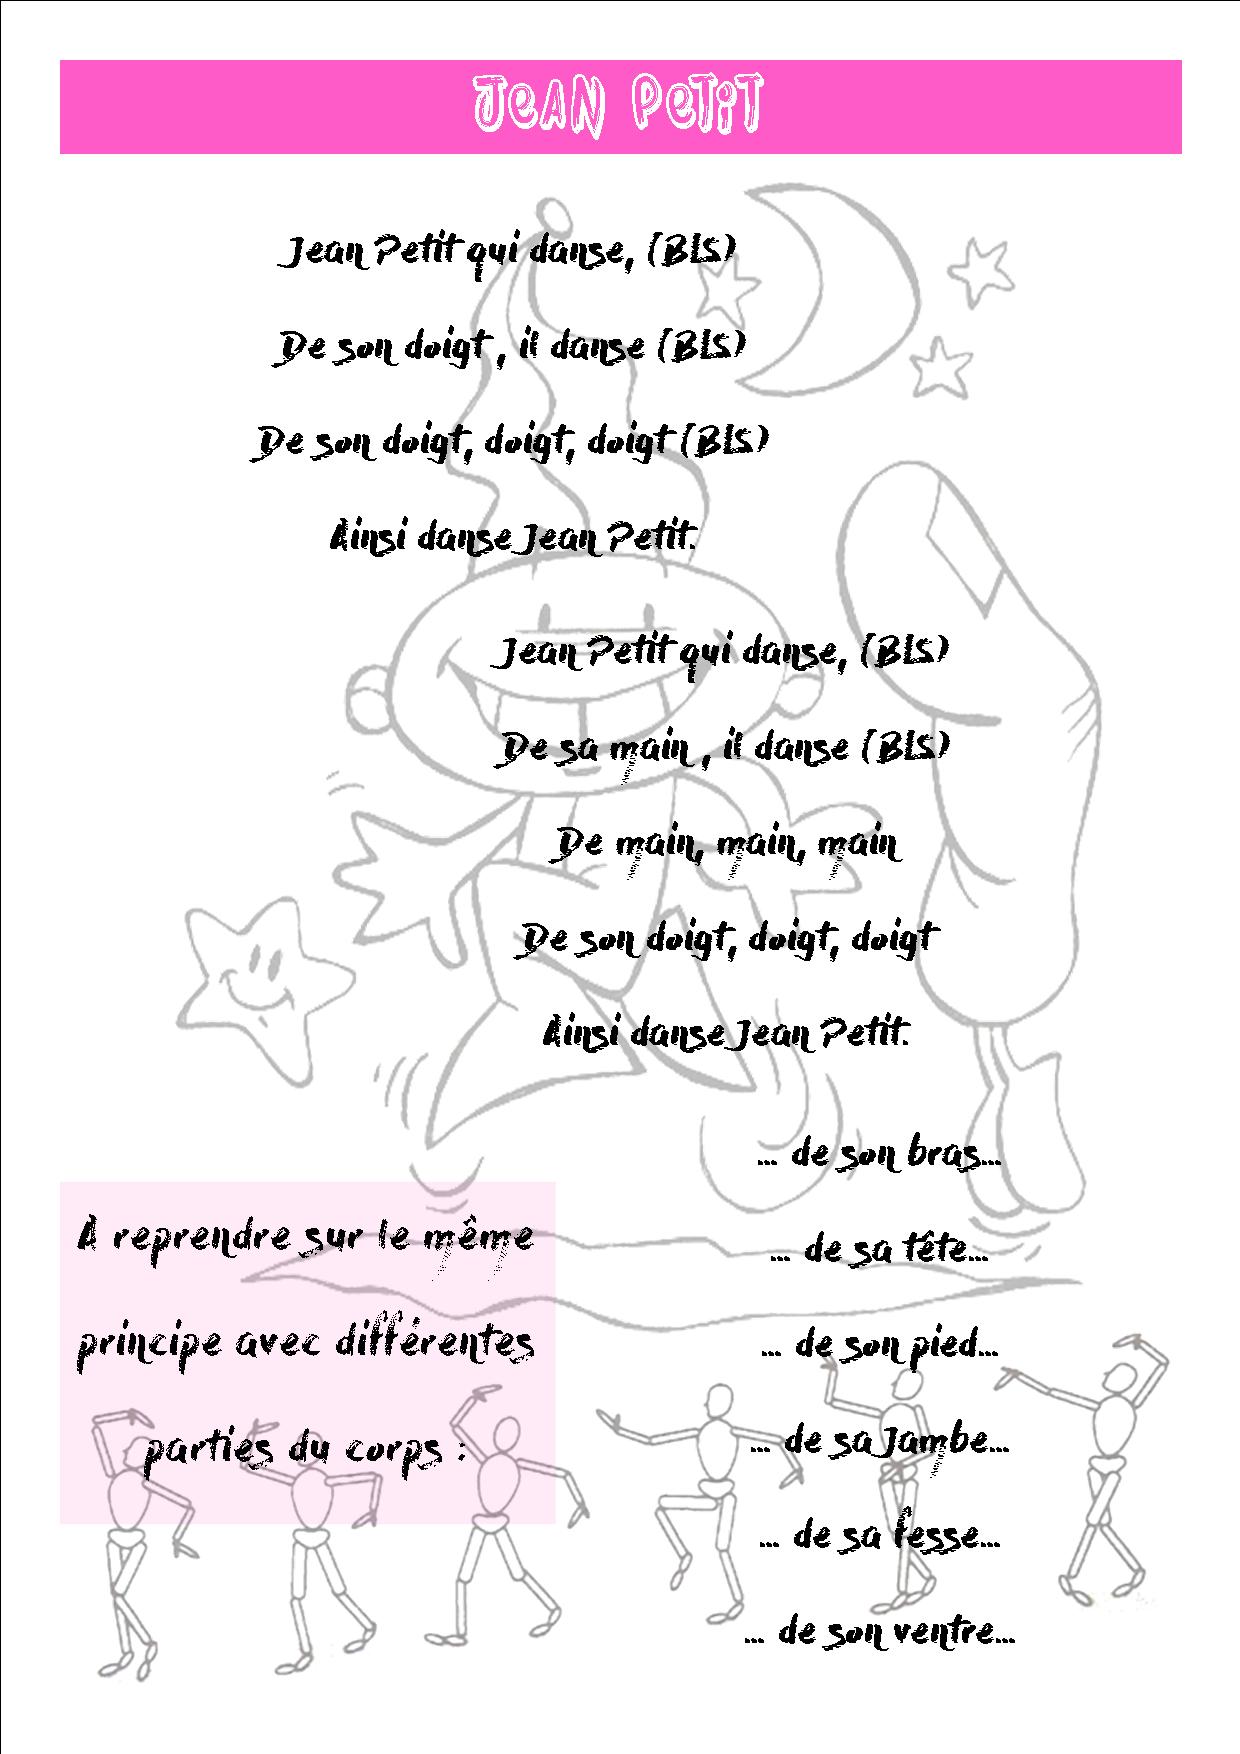 JEAN PETIT
Jean Petit qui danse, (BIS)
De son doigt , il danse (BIS)
De son doigt, doigt, doigt (BIS)
Ainsi danse Jean Petit.
Jean Petit qui danse, (BIS)
De sa main , il danse (BIS)
De main, main, main
De son doigt, doigt, doigt
Ainsi danse Jean Petit.
... de son bras...
... de sa tête...
... de son pied...
... de sa Jambe...
... de sa fesse...
... de son ventre...
A reprendre sur le même
principe avec différentes
parties du corps :